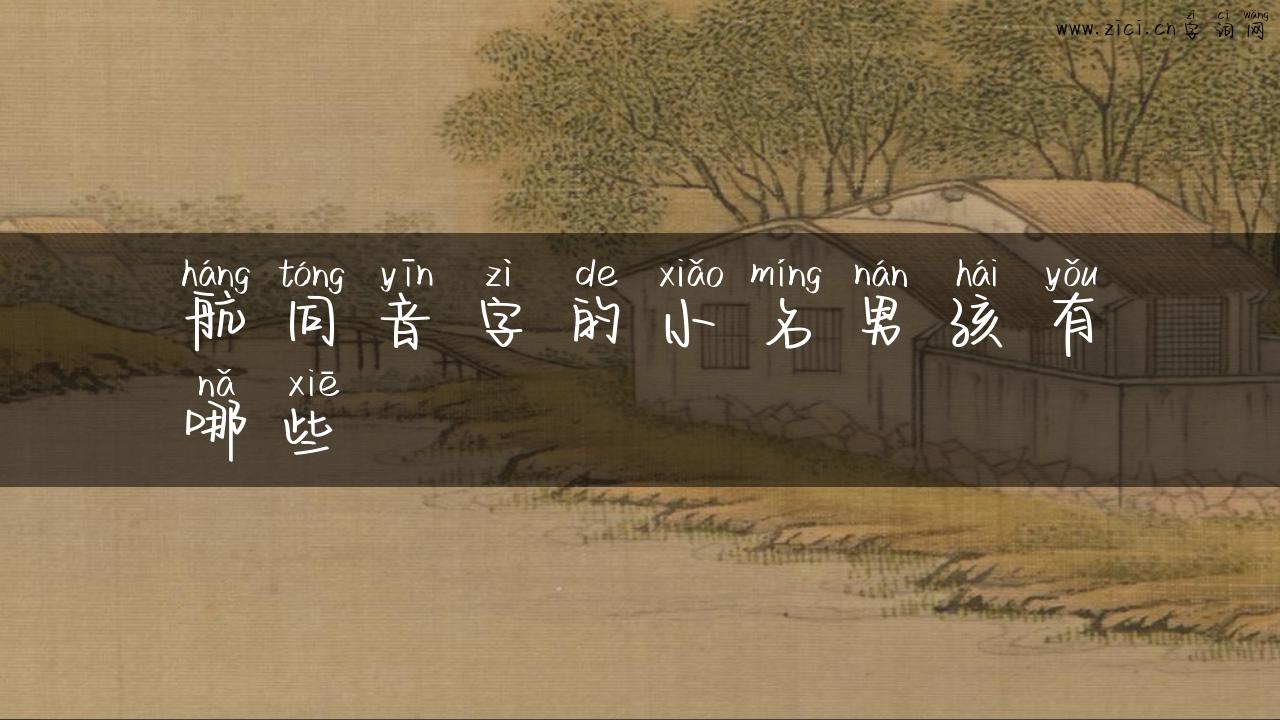 zì cí wǎng
www.zici.cn 字 词 网
háng tóng yīn zì de xiǎo míng nán hái yǒu
航 同 音 字 的 小 名 男 孩 有
nǎ xiē
哪 些